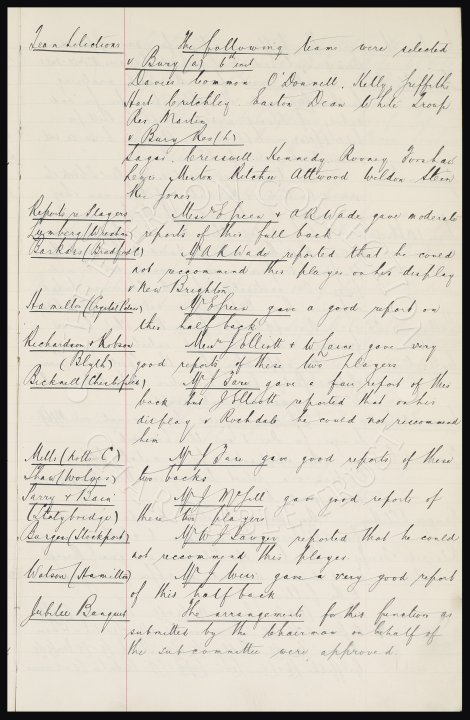 Team Selections The following teams were selected
v Bury (a) 6th inst
Davies. Common O'Donnell. Kelly Griffiths
Hart Critchley. Easton Dean White Troup
Res Martin
v Bury Res (h)
Sagar. Cresswell Kennedy Rooney
Meston Ritchie Attwood Wildon Stein
Res Jones
Reports re Players Messrs E Green & A R Wade gave moderate
(Wrexham) reports of this full back
Barkas (Bradford C) Mr A R Wade reported that he could
not recommend this player on his display
v New Brighton
Hamilton (Crystal Palace) Mr E Green gave a good report on
this half back
Richardson & Robson Messrs J Elliott & W gave very
(Blyth) good reports of these two players
Bicknell (Chesterfield) Mr J Fare gave a fair report of this
back but J Elliott reported that on his
display v Rochdale he could not reccommend
him
Mills (Notts C) Mr J Fare gave good reports of these
Shaw (Wolves) two backs
Parry & Bain Mr J McGill gave good reports of
(Stalybridge) these two players
Burger (Stockport) Mr W J Sawyer reported that he could
not reccommend this player
Watson (Hamilton) Mr J Weir gave a very good report
of this half back
Jubilee Banquet The arrangements for this function as
submitted by the chairman on behalf of
the sub committee were approved.